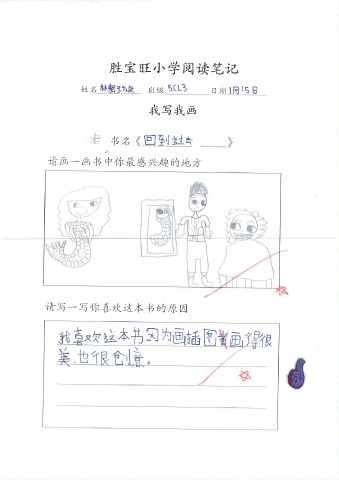 胜宝旺小学阅读笔记
姓名 班级 5CL3 日期 1月15日
我写我画
书名《回到过去》
请画一画书中你最感兴趣的地方
请写一写你喜欢这本书的原因
我喜欢这本书因为画插图画得很
美,也很创意。